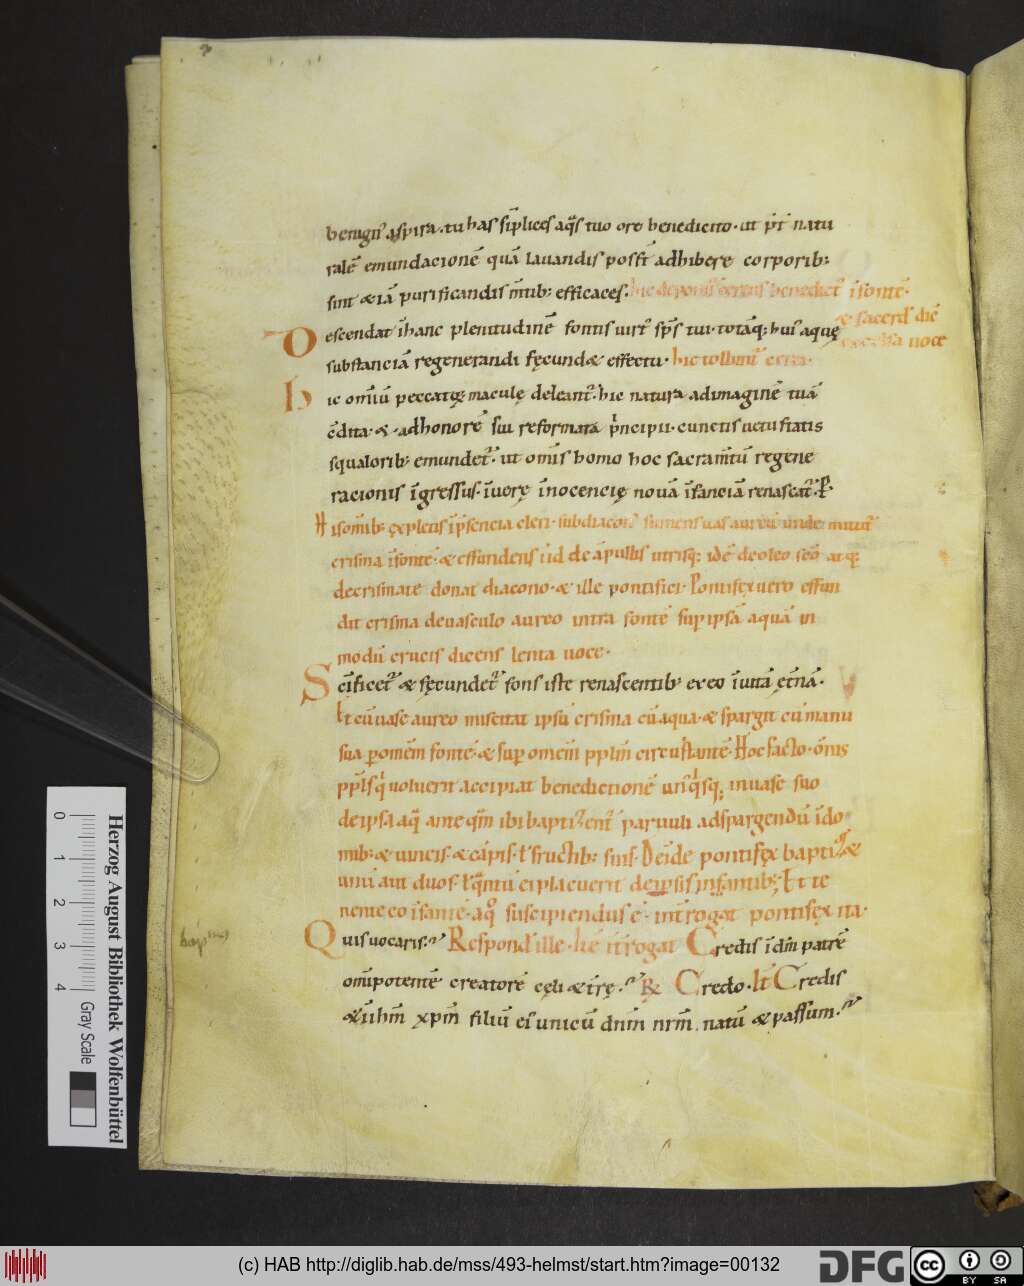 benign᷒ aspira. tu has sīplices aq̄s tuo ore benedicito· ut p̄t̄ natu
ralē emundacionē quā lauandis posst̄ adhibere corporib;
sint & iā purificandis m̄tib; efficaces. hic deponis benedict̄ īfontē·
& sacerd̄ diē
excelsa uoce
Descendat īhanc plenitudinē fontis uirt᷒ sp̄s tui· totāq; hui᷒ aquę
substanciā regenerandi fęcund& effectu· hic tollunt᷒ cerei·
hic omīū peccatoꝝ maculę deleant᷒· hic natura adimaginē tuā
c̄dita· & adhonorē sui reformata p̄ncipii· cunctis uetustatis
squalorib; emundet᷒· ut omīs homo hoc sacram̄tū regene
racionis īgressus· īuerę īnocencię nouā īfanciā renascat᷒· P̄·
Hisom̄ib; expletis īp̄sencia cleri· subdiacon᷒ sumens uas aureū unde mittit᷒
crisma īfontē· & effundens īid de āpullis utrisq; idē de oleo sc̄o atq;
decrismate donat diacono· & ille pontifici· Pontifex uero effun
dit crisma deuasculo aureo intra fontē sup̄ ipsā aquā in
modū crucis dicens lenta uoce·
Sc̄ificet᷒ & fęcundet᷒ fons iste renascentib; ex eo īuitā ęt̄nā·
Et cū uase aureo miscitat ipsū crisma cū aqua· & spargit cū manu
sua p̄ omēm fontē· & sup̄ omēm pplm̄ circūstantē· Hoc facto· om̄is
ppl̄s q̄ uoluerit accipiat benedictionē unq̄sq; inuase suo
deipsa aq̄ ante q̄m ibi baptizent᷒ paruuli adspargendū īdo
mib; & uineis· & cāpis· ł fructib; suis. Deīde pontifex baptiz&
unū aut duos· ł q̄ntū ei placuerit deipsis infantib;· Et te
nente eo īfantē· aq̊ suscipiendus ē· int̄rogat pontifex ita·
Quis uocaris. Respond̄ ille· hē it̄rogat Credis īdm̄ patrē
bapsm̄
om̄ipotentē creatorē cęli & tr̄ę. R̄ Credo· It̄ Credis
& ī ihm̄ xpm̄ filiū ei᷒ unicū dnm̄ nr̄m. natū & passum·
0 1 2 3 4
Gray Scale
Herzog August Bibliothek Wolfenbüttel
(c) HAB http://diglib.hab.de/mss/493-helmst/start.htm?image=00132
DFG
cc BY SA